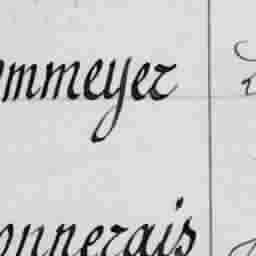 ommeyer
onnerais